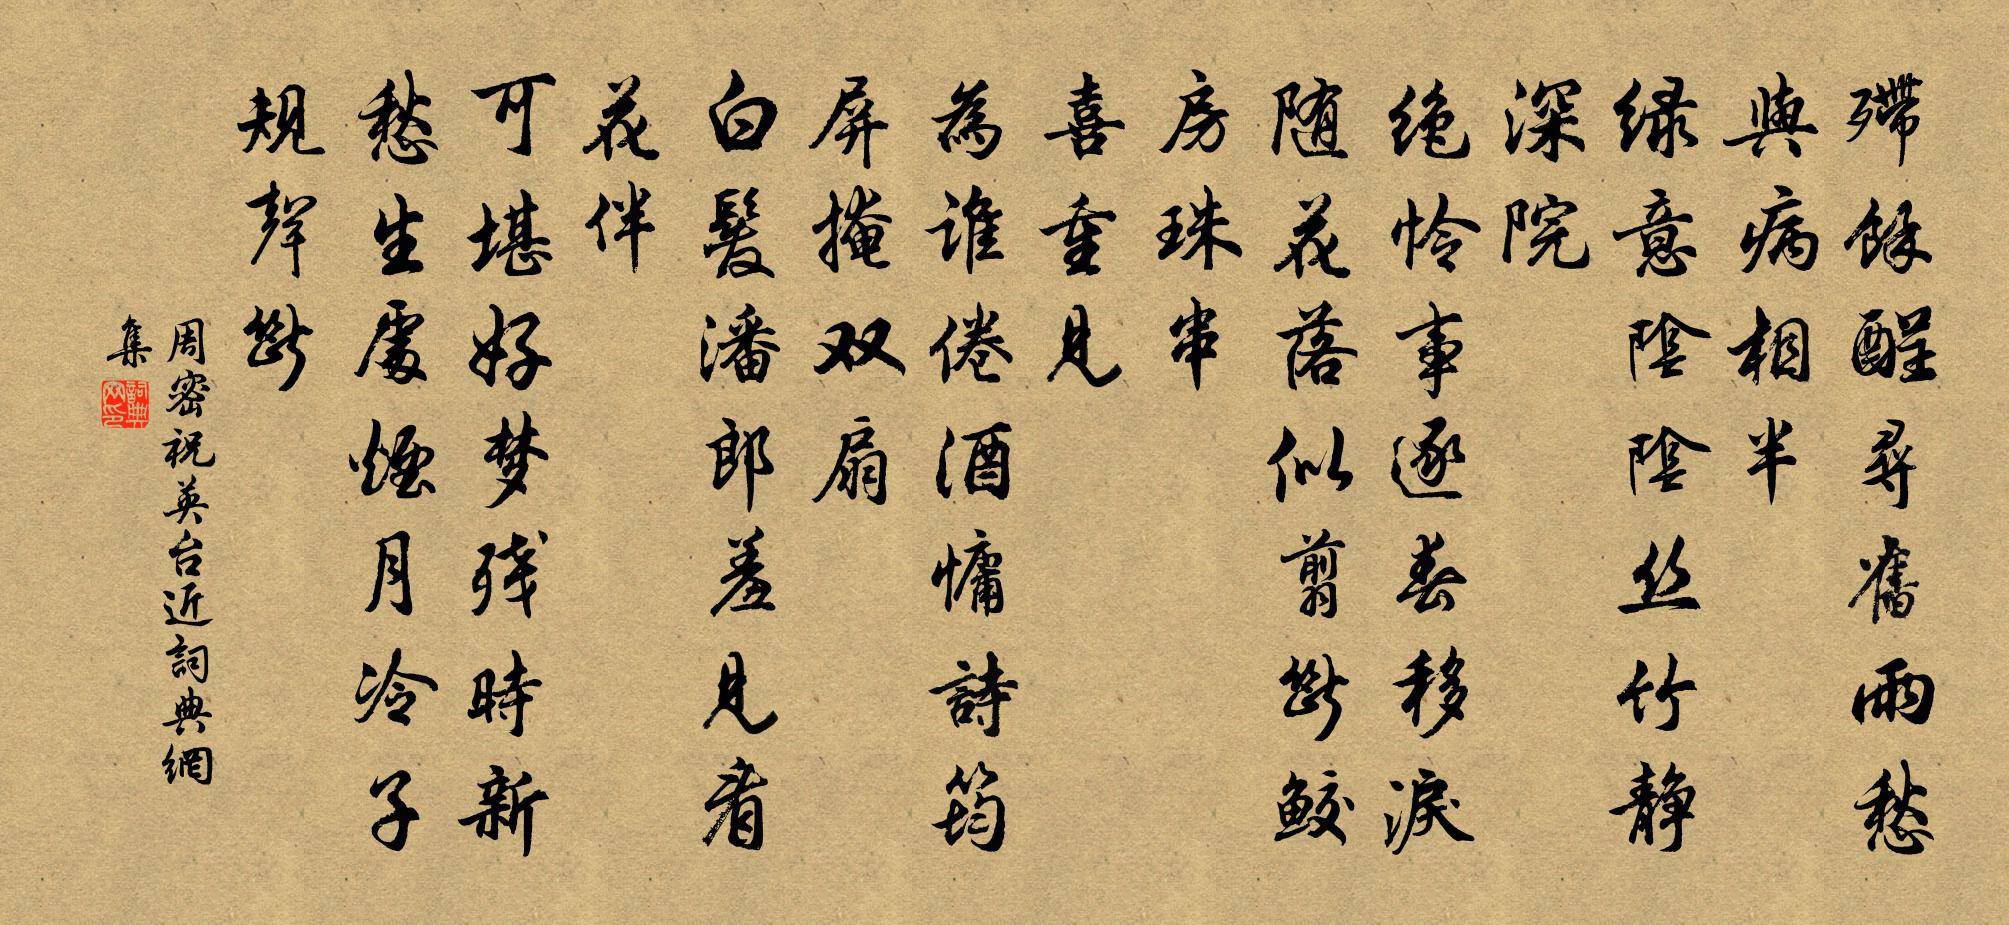 殢餘酲尋舊雨愁
與病相半
绿意陰陰丝竹静
深院
绝怜事逐春移淚
随花落似剪斷鲛
房珠串
喜重見
為谁倦酒慵詩筠
屏掩双扇
白髮潘郎羞見看
花伴
可堪好梦残時新
愁生處煙月冷子
規聲斷
周密祝英台近詞典網
集
詞典网印